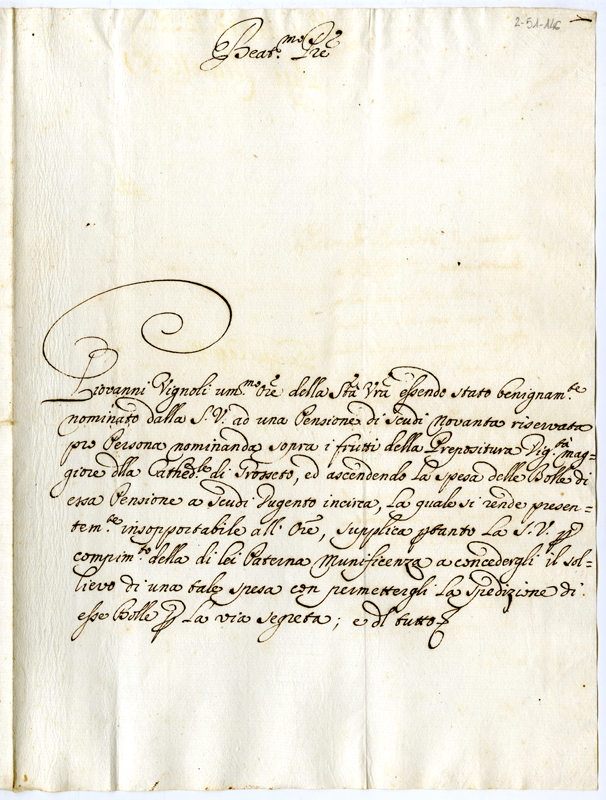 2-51-146
Beat.mo Pre
Giovanni Vignoli um.mo Ore della Stà Vrà essendo stato benignam.te
nominato dalla S.V. ad una Pensione di Scudi novanta riservata
pro Persona nominanda sopra i frutti della Prepositura Dig.tà mag=
giore dlla Cathed.le di Grosseto, ed ascendendo la spesa delle Bolle di
essa Pensione a Scudi Dugento incirca, la quale si rende presen=
tem.te insopportabile all' Ore, supplica ptanto la S.V. p
compim.to della di lei Paterna Munificenza a concedergli il sol=
lievo di una tale spesa con permettergli la spedizione di
esse Bolle p la via segreta; e dl tutto